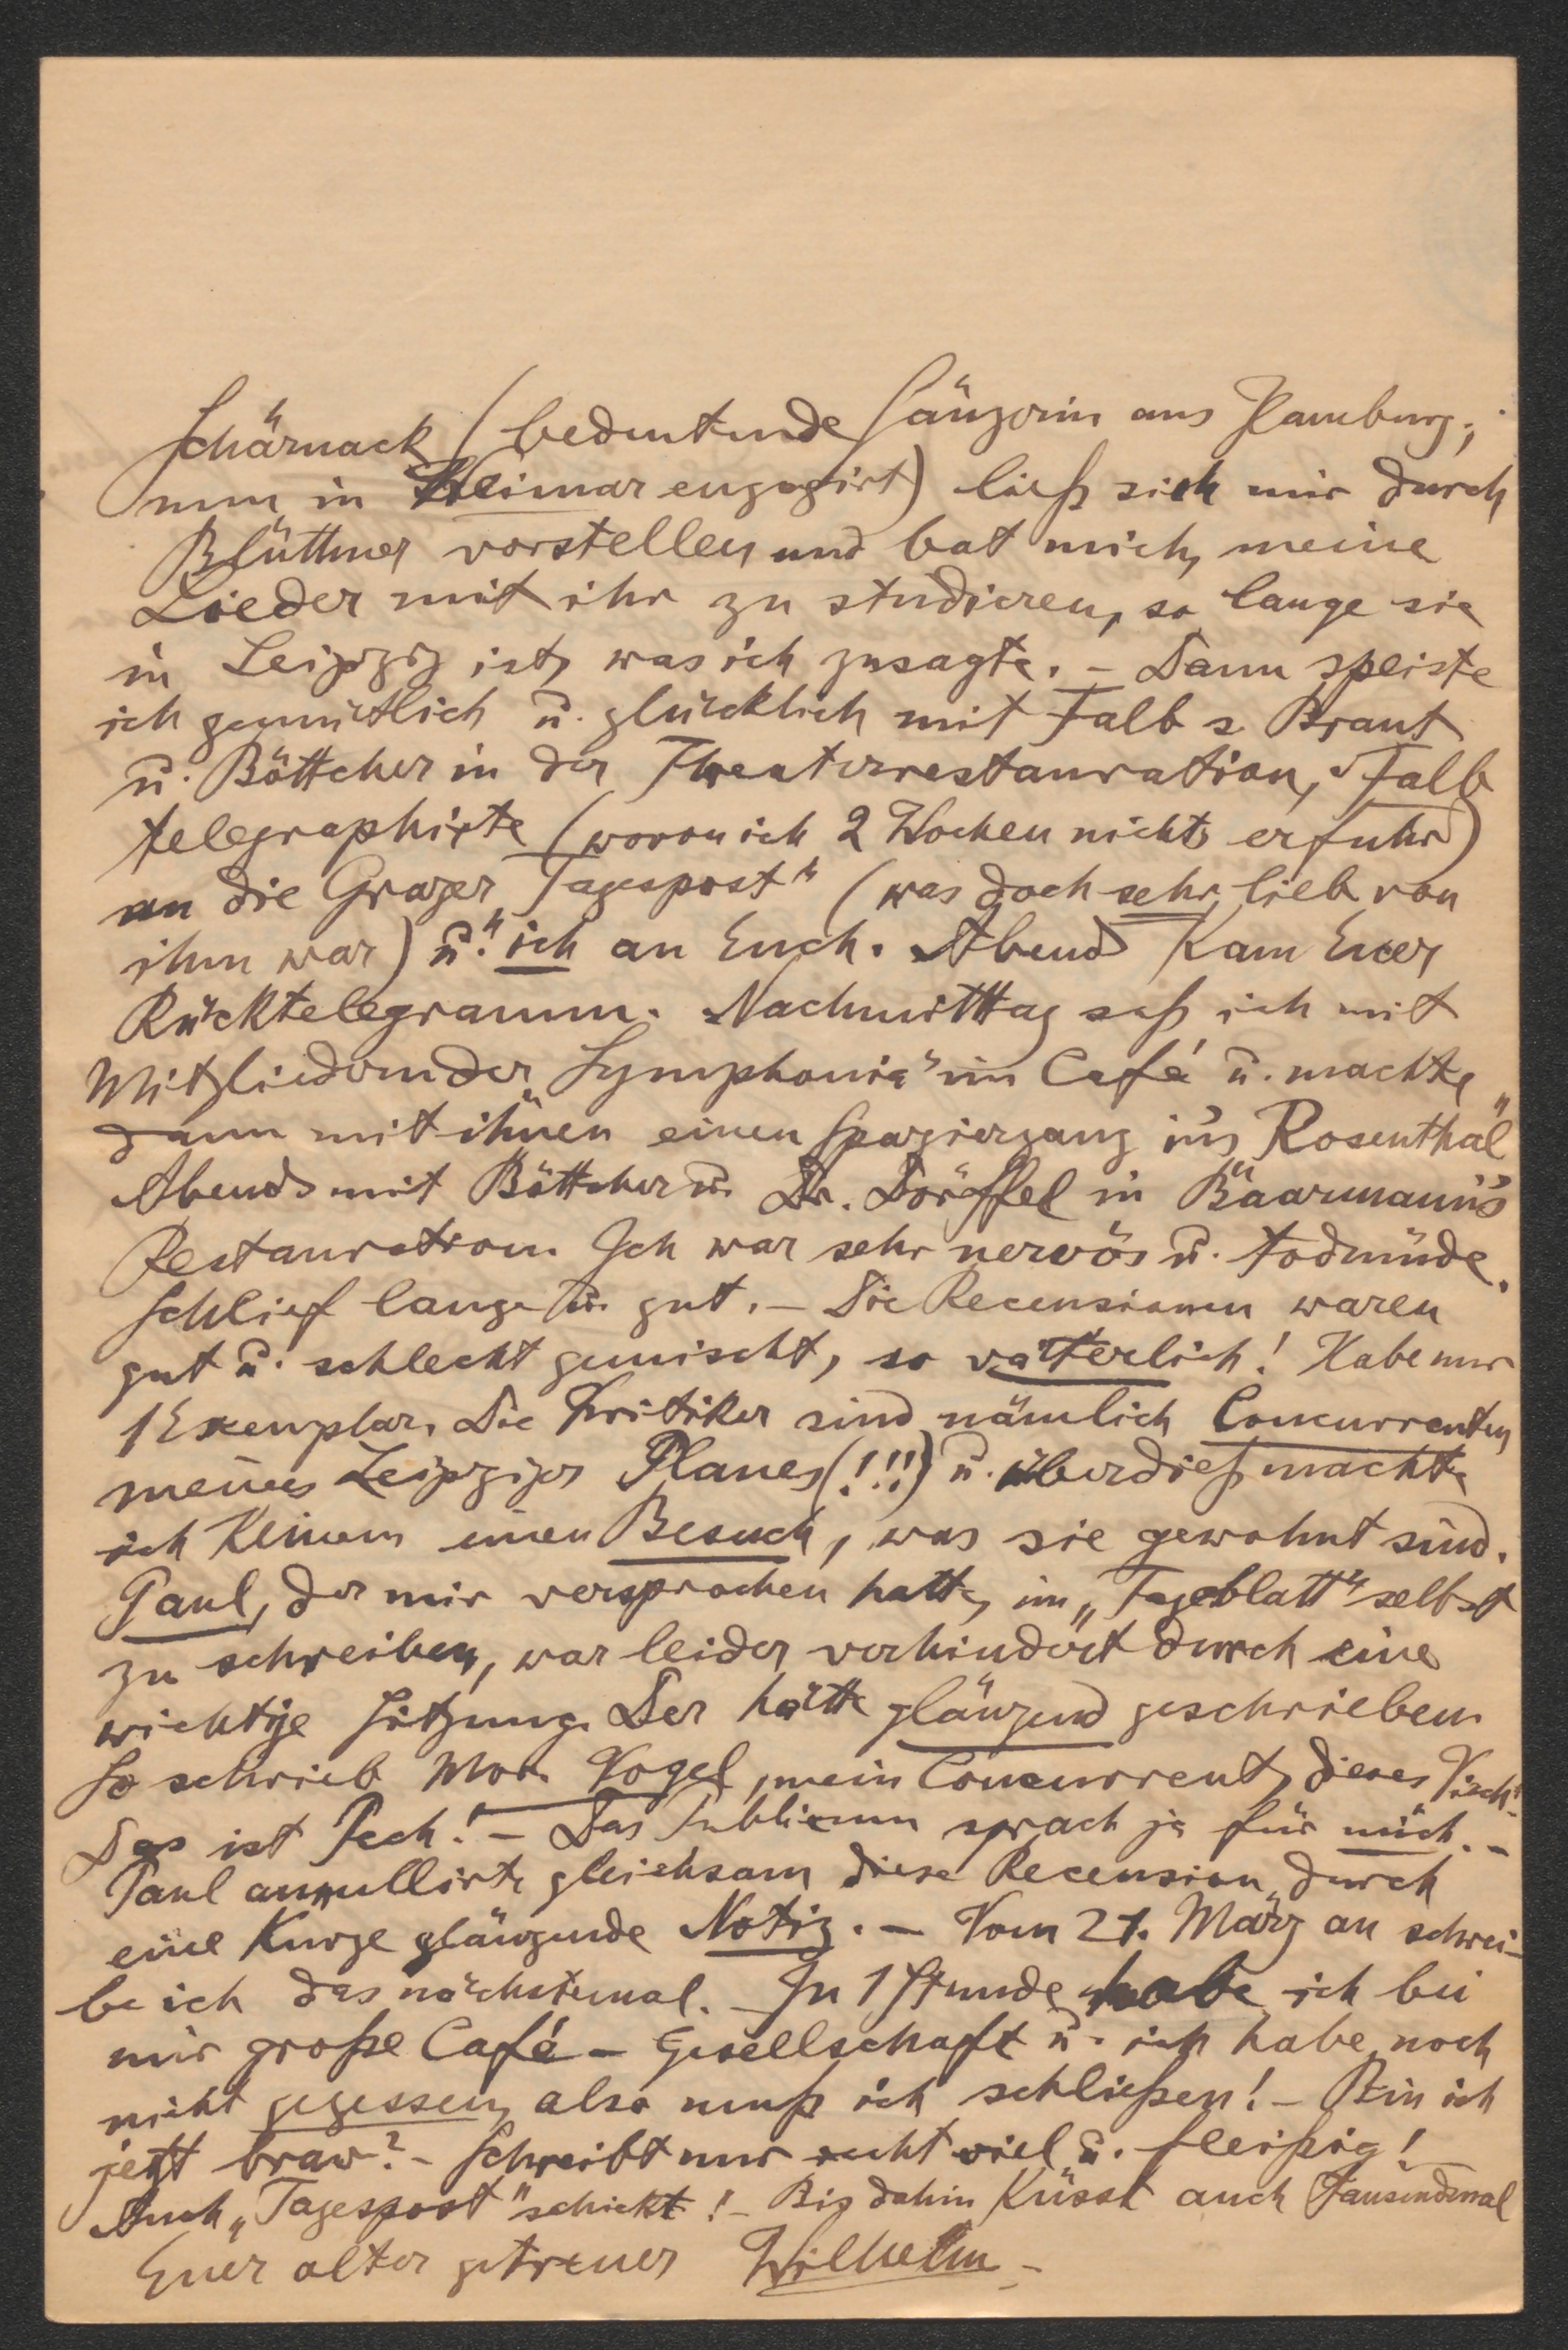 Schärnack (bedeutende Sängerin aus Hamburg,
nun in Weimar engagirt) ließ sich mir durch
Blüthner vorstellen und bat mich, meine
Lieder mit ihr zu studieren, so lange sie
in Leipzig ist, was ich zusagte. – Dann speiste
ich gemütlich u. glücklich mit Falb s. Braut
u. Böttcher in der Theaterrestauration, Falb
telegraphirte (wovon ich 2 Wochen nichts erfuhr)
an die Grazer „Tagespost“ (was doch sehr lieb von
ihm war) u. ich an Euch. Abend kam Euer
Rücktelegramm. Nachmittag saß ich mit
Mitgliedern der „Symphonia“ im Café u. machte
dann mit ihnen einen Spaziergang in's „Rosenthal“
Abends mit Böttcher u. Dr. Dörffel in Baarmann's
Restauration. Ich war sehr nervös u. todmüde.
Schlief lange u. gut. – Die Recensionen waren
gut u. schlecht gemischt, so vätterlich! Habe nur
1 Exemplar. Die Kritiker sind nämlich Concurrenten
meines Leipziger Planes (!!!) u. überdieß machte
ich Keinem einen Besuch, was sie gewohnt sind.
Paul, der mir versprochen hatte, im „Tageblatt“ selbst
zu schreiben, war leider verhindert durch eine
wichtige Sitzung. Der hätte glänzend geschrieben.
So schrieb Mor. Vogel, mein Concurrent, dieses Viech!
Das ist Pech! – Das Publicum sprach ja für mich. –
Paul annullirte gleichsam diese Recension durch
eine kurze glänzende Notiz. – Vom 21. März an schrei-
be ich das nächstemal. – In 1 Stunde habe ich bei
mir große Café-Gesellschaft u. ich habe noch
nicht gegessen, also muß ich schließen! – Bin ich
jetzt brav? – Schreibt nur recht viel u. fleißig!
Auch „Tagespost“ schickt! – Bis dahin küsst auch tausendmal
Euer alter getreuer Wilhelm –